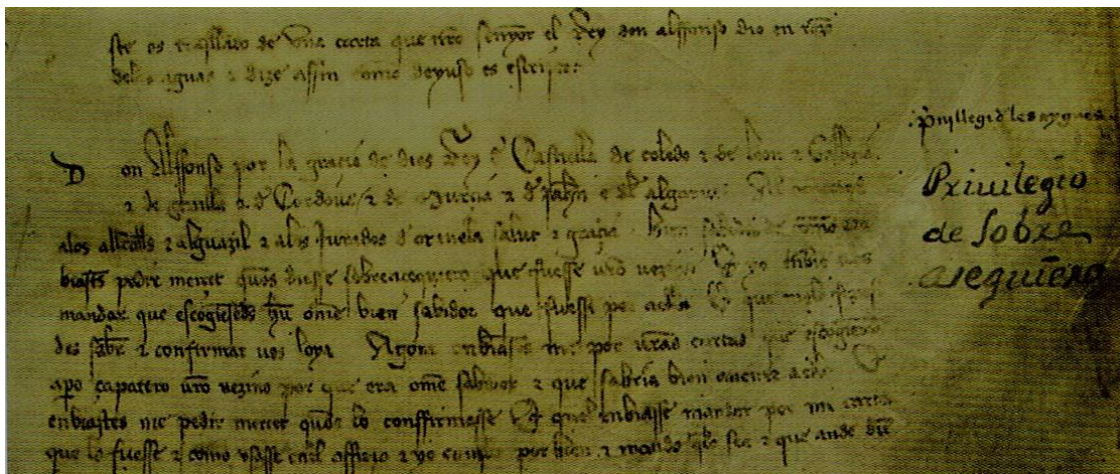 ste es trasllado de vna carta que nro senyor el Rey don alffonso dio en
delas aguas ⁊ dize assin como deyuso es escripto:
Don Alffonso por la gracia de dios Rey de Castiella de toledo ⁊ de leon ⁊ Gallizia
⁊ de seuilla ⁊ de Cordoua ⁊ de Murcia ⁊ de Jahen e del algarue
alos ⁊ alguazil ⁊ alos Jurados d'oriuela salut ⁊ gracia Bien sabedes como
biastes pedir merçet quos diesse sobreacequiero que fuesse uro vezino Et yo
mandar que escogiessedes hun ome bien sabidor que fuesse por Et que
des saber ⁊ confirmar uos loya Agora enbiastes me por uras cartas que
apo çapatero uro vezino por que era ome sabidor ⁊ que sabria bien
enbiastes me pedir merçet quos lo conffirmasse Et quel enbiasse mandar por mi carta
que lo fuesse ⁊ como vsasse enel officio ⁊ yo por bien ⁊ mando que sea ⁊ que ande
priuilegi de les aygues
Priuilegio
de sobre
asequiero